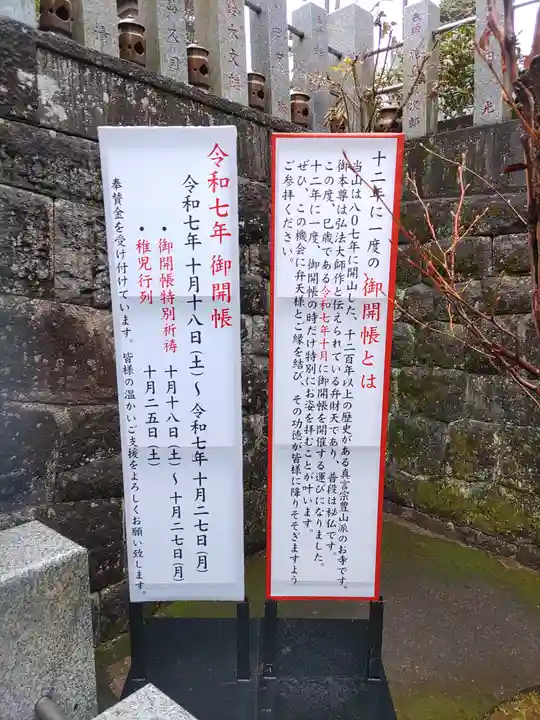 十二年に一度の
御開帳とは
当山は八〇七年に開山した、千二百年以上の歴史がある真言宗豊山派のお寺です。
御本尊は弘法大師作と伝えられている弁財天であり、普段は秘仏です。
この度、巳歳である令和七年十月に御開帳を開催する運びになりました。
十二年に一度、御開帳の時だけ特別にお姿を拝むことが叶います。
ぜひ、この機会に弁天様とご縁を結び、その功徳が皆様に降りそそぎますよう
ご参拝ください。
令和七年 御開帳
令和七年 十月十八日(土)〜令和七年 十月二七日(月)
・御開帳特別祈祷 十月十八日(土)〜十月二七日(月)
・稚児行列 十月二五日(土)
奉賛金を受け付けています。皆様の温かいご支援をよろしくお願い致します。